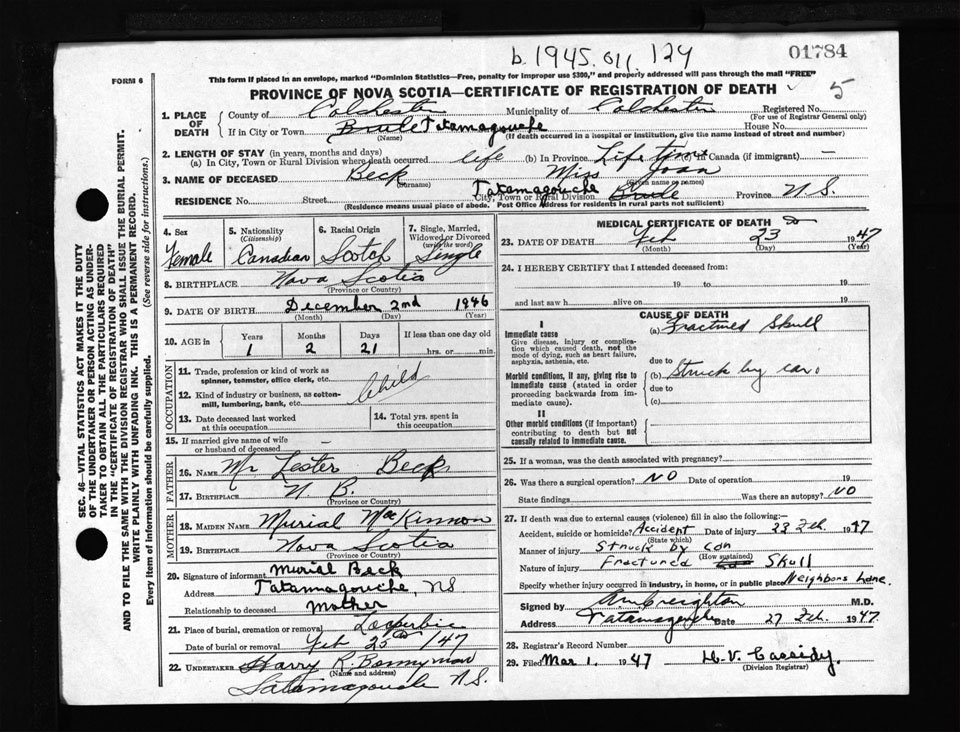 b. 1945.011.124
01784
5
FORM 6
This form if placed in an envelope, marked "Dominion Statistics—Free, penalty for improper use $300," and properly addressed will pass through the mail "FREE"
PROVINCE OF NOVA SCOTIA—CERTIFICATE OF REGISTRATION OF DEATH
1. PLACE OF DEATH
County of Colchester Municipality of Colchester Registered No.
(For use of Registrar General only)
If in City or Town Brule Tatamagouche House No.
(Name) (If death occurred in a hospital or institution, give the name instead of street and number)
2. LENGTH OF STAY (in years, months and days)
(a) In City, Town or Rural Division where death occurred life (b) In Province Life time Canada (if immigrant) —
3. NAME OF DECEASED Beck Miss Joan
(Surname) (Given name or names)
RESIDENCE No. Street Tatamagouche Brule Province N.S.
City, Town or Rural Division
(Residence means usual place of abode. Post Office address for residents in rural parts not sufficient)
4. Sex Female
5. Nationality (Citizenship) Canadian
6. Racial Origin Scotch
7. Single, Married, Widowed or Divorced (write the word) Single
8. BIRTHPLACE Nova Scotia
(Province or Country)
9. DATE OF BIRTH December 2nd 1946
(Month) (Day) (Year)
10. AGE in Years Months Days If less than one day old
1 2 21 hrs. or min.
OCCUPATION
11. Trade, profession or kind of work as spinner, teamster, office clerk, etc.
12. Kind of industry or business, as cotton-mill, lumbering, bank, etc.
Child
13. Date deceased last worked at this occupation
14. Total yrs. spent in this occupation
15. If married give name of wife or husband of deceased —
FATHER
16. NAME Mr Lester Beck
17. BIRTHPLACE N. B.
(Province or Country)
MOTHER
18. MAIDEN NAME Murial MacKinnon
19. BIRTHPLACE Nova Scotia
(Province or Country)
20. Signature of informant Murial Beck
Address Tatamagouche, NS
Relationship to deceased Mother
21. Place of burial, cremation or removal
Date of burial or removal Feb 25th /47
22. UNDERTAKER Harry R. Bonnyman
(Name and address)
Tatamagouche N.S.
MEDICAL CERTIFICATE OF DEATH
23. DATE OF DEATH Feb 23 1947
(Month) (Day) (Year)
24. I HEREBY CERTIFY that I attended deceased from:
19 to 19
and last saw h alive on 19
CAUSE OF DEATH
I
Immediate cause
Give disease, injury or complication which caused death, not the mode of dying, such as heart failure, asphyxia, asthenia, etc.
(a) Fractured Skull
due to
Morbid conditions, if any, giving rise to immediate cause (stated in order proceeding backwards from immediate cause).
(b) Struck by car.
due to
(c)
II
Other morbid conditions (if important) contributing to death but not causally related to immediate cause.
25. If a woman, was the death associated with pregnancy?
26. Was there a surgical operation? NO Date of operation 19
State findings Was there an autopsy? NO
27. If death was due to external causes (violence) fill in also the following:—
Accident, suicide or homicide? Accident Date of injury 23 Feb. 1947
(State which)
Manner of injury Struck by car
(How sustained)
Nature of injury Fractured Skull
Specify whether injury occurred in industry, in home, or in public place Neighbors lane.
Signed by Creighton M.D.
Address Tatamagouche Date 27 Feb. 1947.
28. Registrar's Record Number
29. Filed Mar 1. 1947 Cassidy.
(Division Registrar)
SEC. 46—VITAL STATISTICS ACT MAKES IT THE DUTY
OF THE UNDERTAKER OR PERSON ACTING AS UNDER-
TAKER TO OBTAIN ALL THE PARTICULARS REQUIRED
IN THE "CERTIFICATE OF REGISTRATION OF DEATH"
AND TO FILE THE SAME WITH THE DIVISION REGISTRAR WHO SHALL ISSUE THE BURIAL PERMIT.
WRITE PLAINLY WITH UNFADING INK. THIS IS A PERMANENT RECORD.
Every item of information should be carefully supplied. (See reverse side for instructions.)